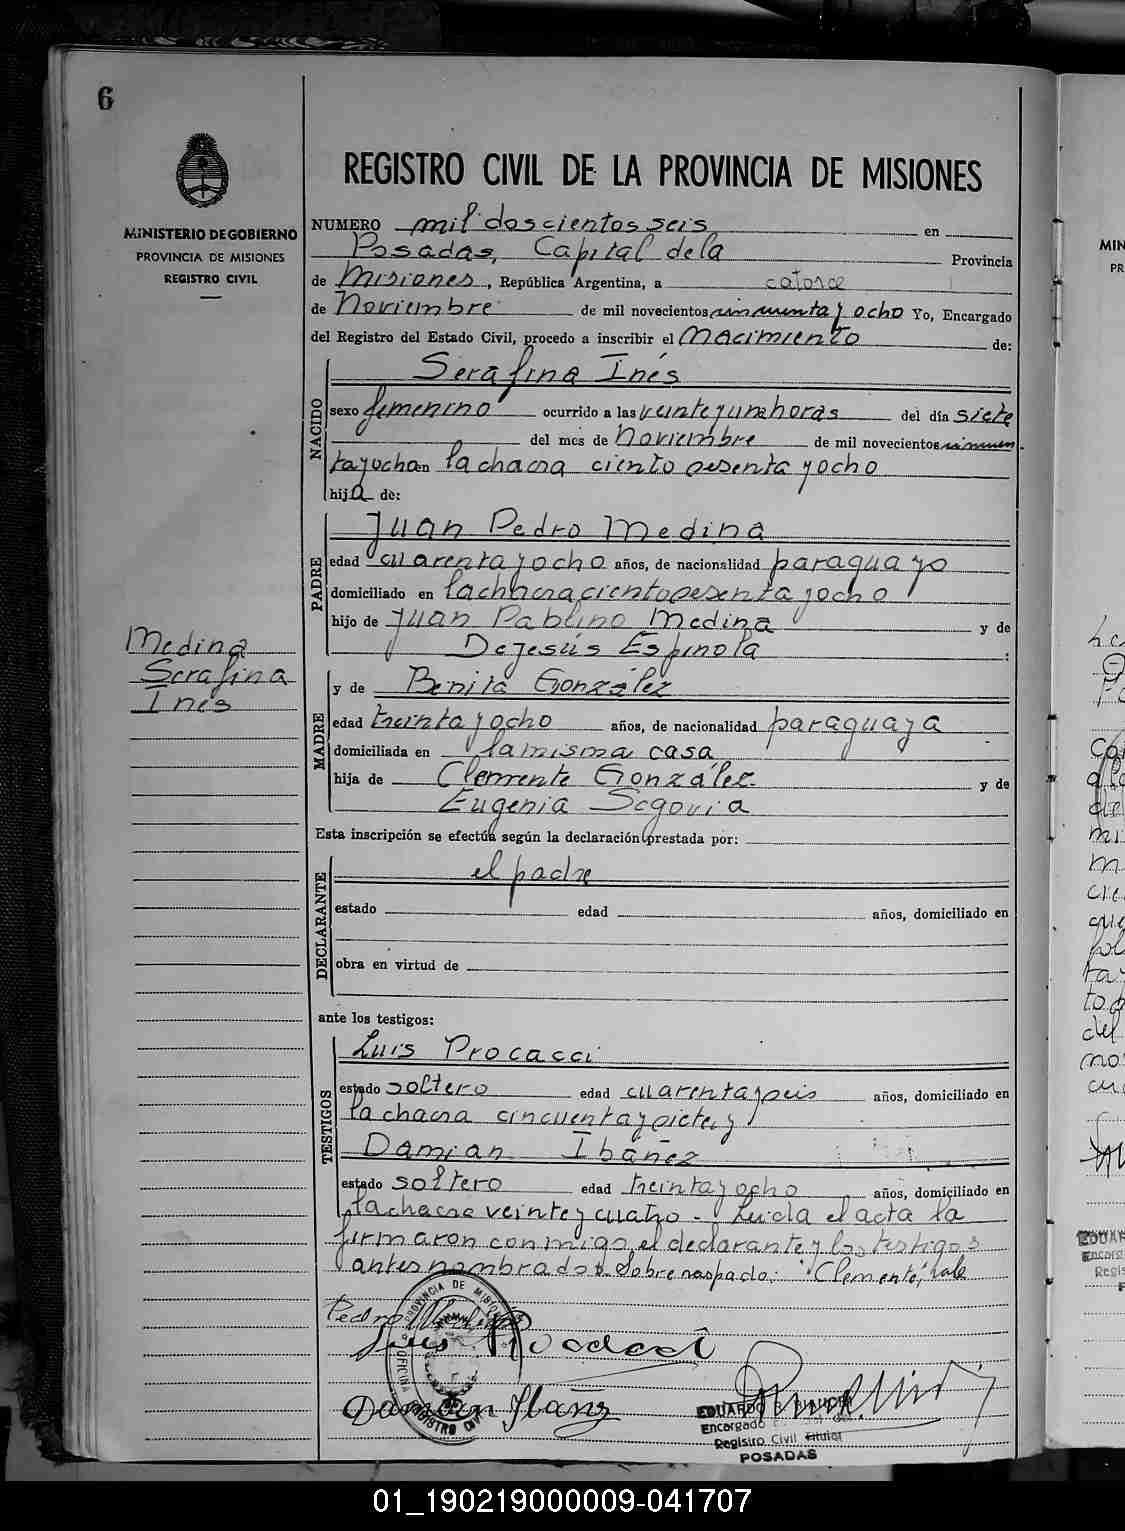 6
REGISTRO CIVIL DE LA PROVINCIA DE MISIONES
MINISTERIO DE GOBIERNO
PROVINCIA DE MISIONES
REGISTRO CIVIL
NUMERO mil doscientos seis en
Posadas, Capital de la Provincia
de Misiones, República Argentina, a catorce
de Noviembre de mil novecientos cincuenta y ocho Yo, Encargado
del Registro del Estado Civil, procedo a inscribir el Nacimiento de:
NACIDO
Serafina Inés
sexo femenino ocurrido a las veinteyuna horas del día siete
del mes de Noviembre de mil novecientos cincuen
tayocho en la chacra ciento sesenta y ocho
hija de:
PADRE
Juan Pedro Medina
edad cuarenta y ocho años, de nacionalidad paraguayo
domiciliado en la chacra ciento sesenta y ocho
hijo de Juan Pablino Medina y de
Dejesús Espinola :
Medina
Serafina
Inés
MADRE
y de Benita González
edad treinta y ocho años, de nacionalidad paraguaya
domiciliada en la misma casa
hija de Clemente González y de
Eugenia Segovia
Esta inscripción se efectúa según la declaración prestada por:
DECLARANTE
el padre
estado edad años, domiciliado en
obra en virtud de
ante los testigos:
TESTIGOS
Luis Procacci
estado soltero edad cuarenta y seis años, domiciliado en
la chacra cincuenta y siete y
Damian Ibañez
estado soltero edad treinta y ocho años, domiciliado en
la chacra veinte y cuatro - Leida el acta la
firmaron conmigo el declarante y los testigos
antes nombrados. Sobre raspado: "Clemente", vale
Pedro Medina
Luis Procacci
Damian Ibañez
PROVINCIA DE MISIONES
OFICINA REGISTRO CIVIL
EDUARDO
Encargado
Registro Civil Titular
POSADAS
01_190219000009-041707